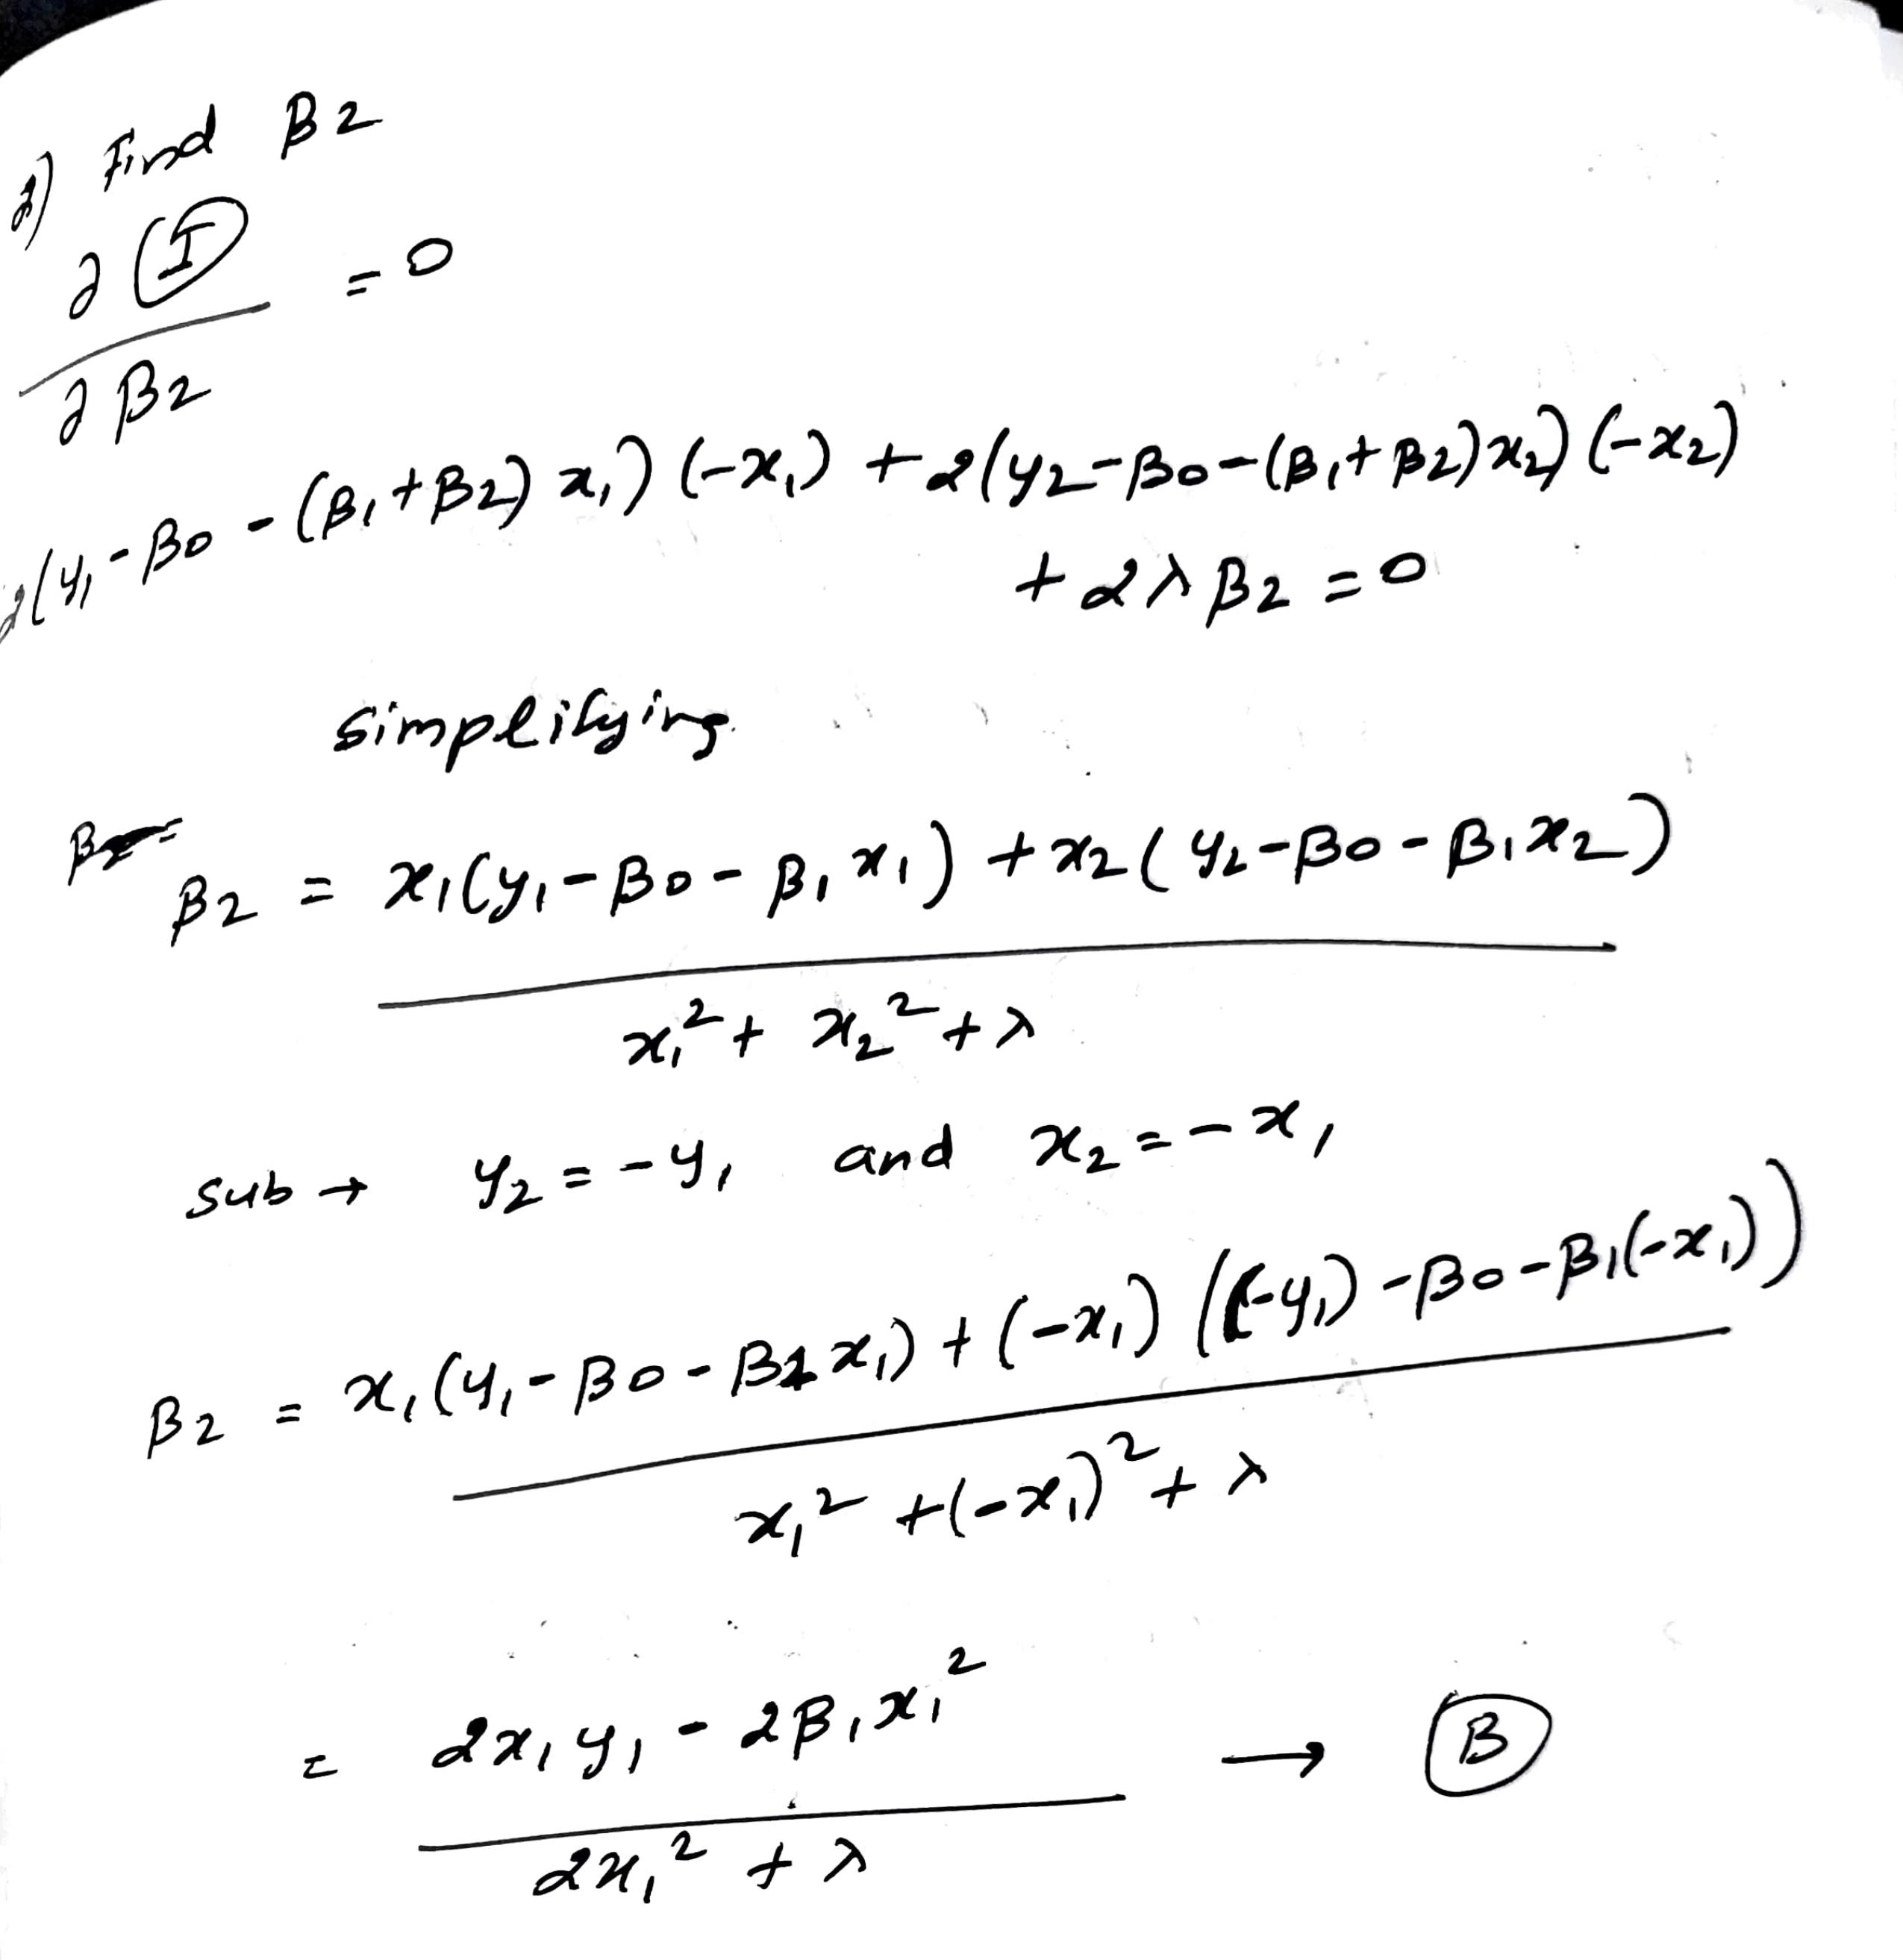 2) Find β2
∂(I)
= 0
∂β2
2(y₁-β0-(β₁+β2)x₁)(-x₁) + 2(y₂-β0-(β₁+β2)x₂)(-x₂)
+ 2λβ2 = 0
simplifying.
β2 = x₁(y₁-β0-β₁x₁) + x₂(y₂-β0-β₁x₂)
x₁² + x₂² + λ
sub → y₂ = -y₁ and x₂ = -x₁
β2 = x₁(y₁-β0-β1x₁) + (-x₁)((-y₁)-β0-β₁(-x₁))
x₁² + (-x₁)² + λ
= 2x₁y₁ - 2β₁x₁² → (B)
2x₁² + λ